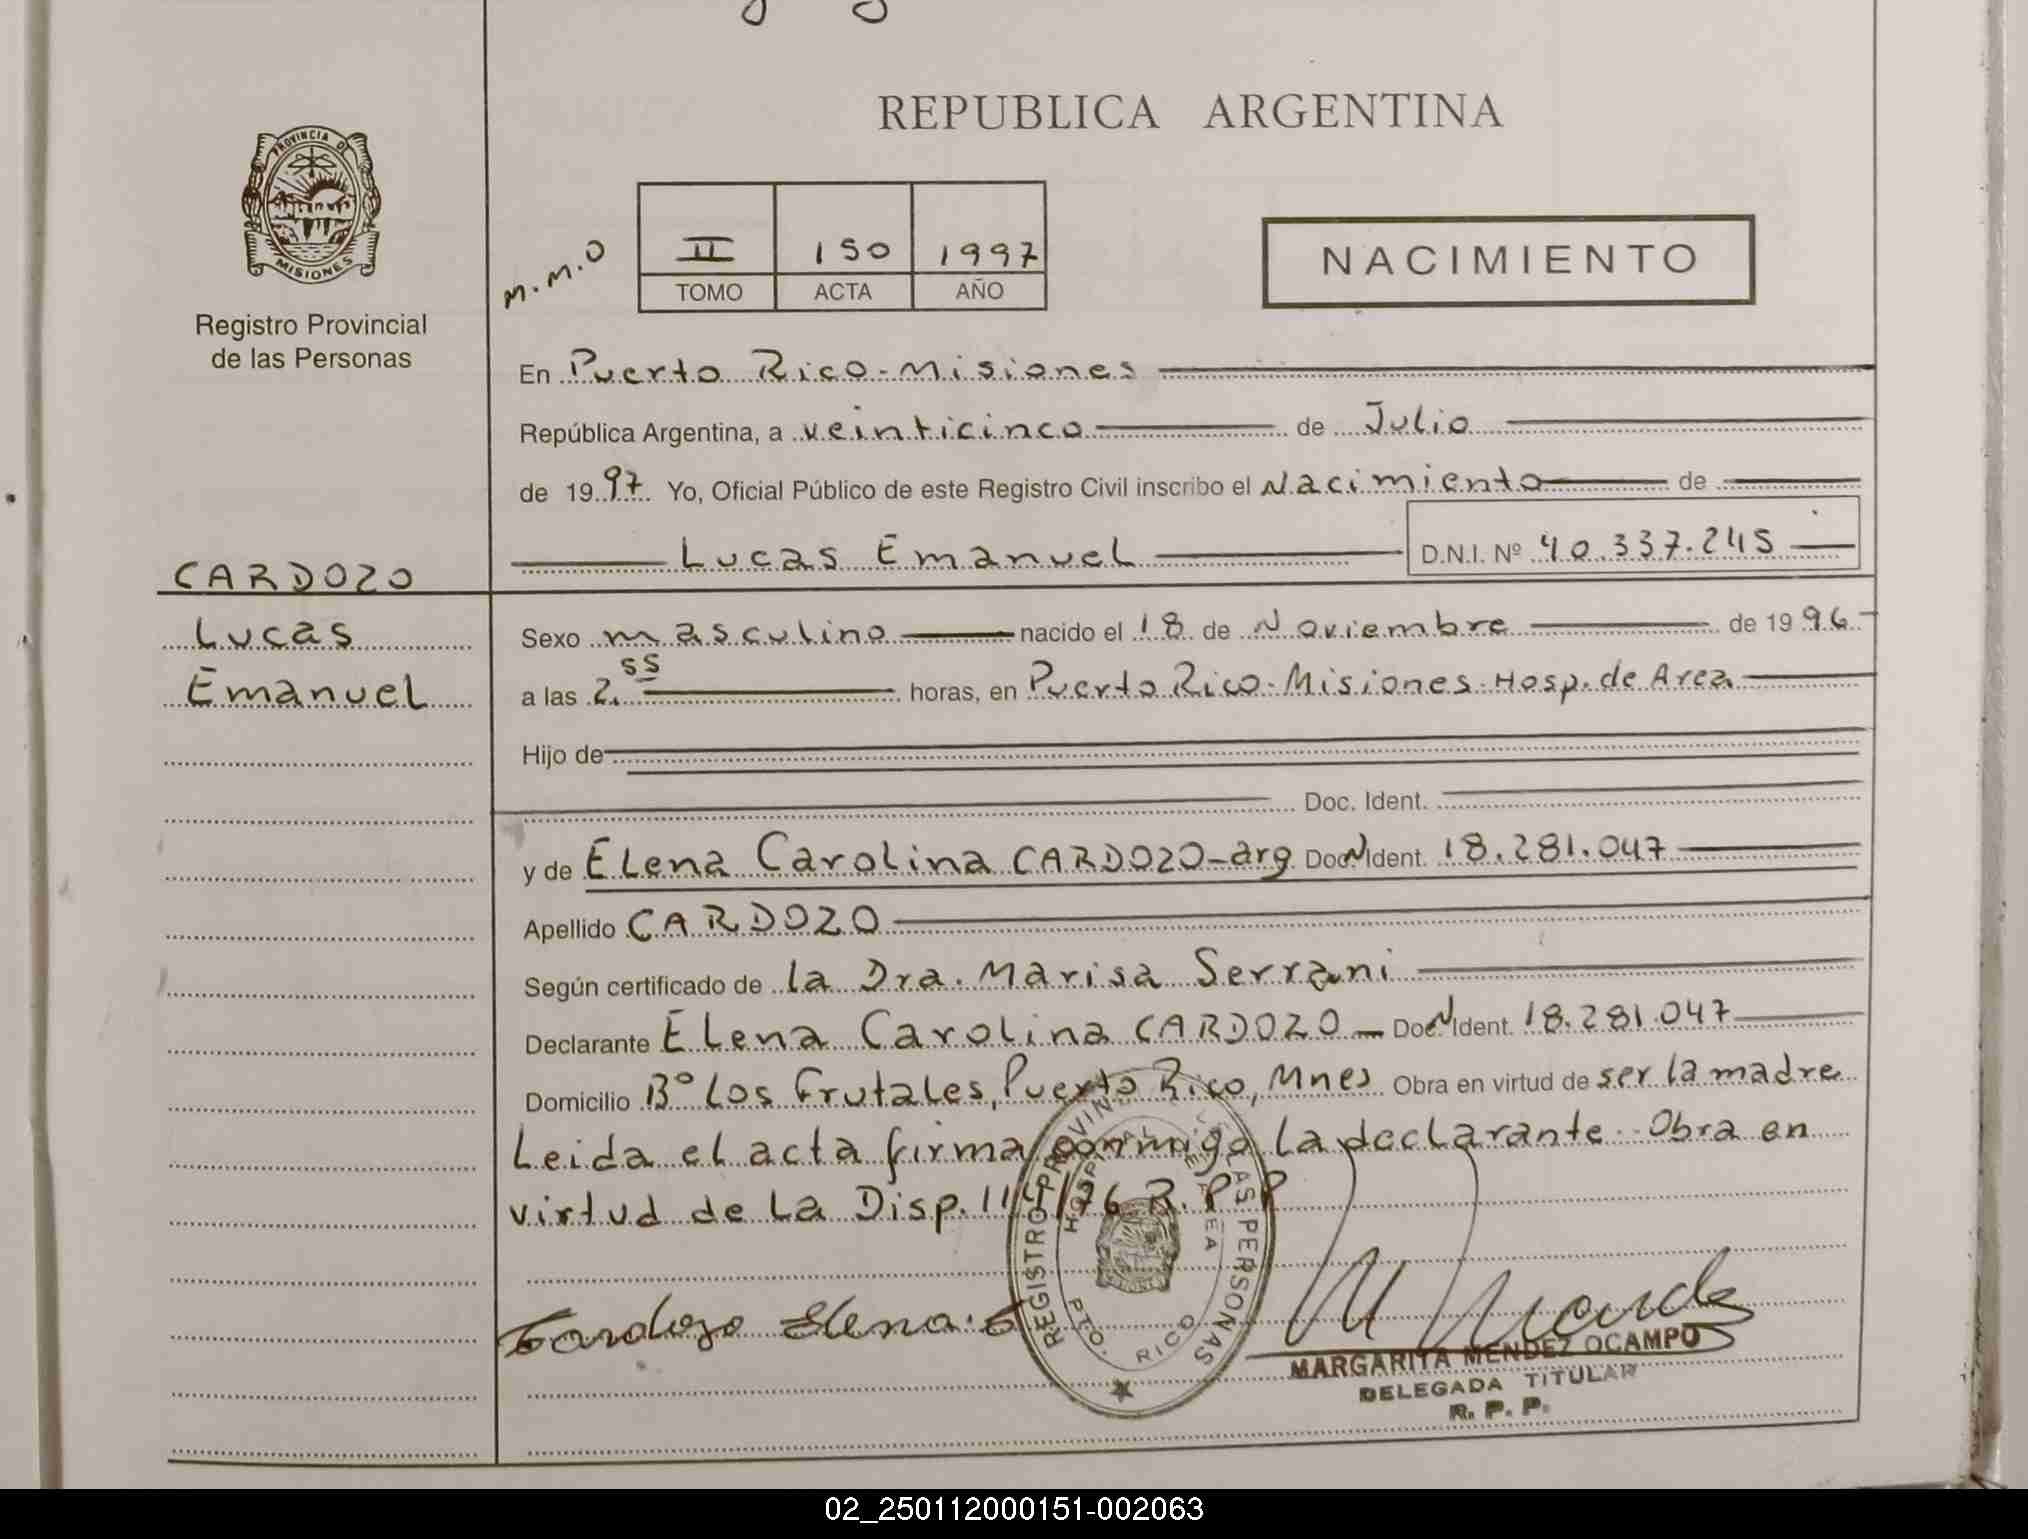 REPUBLICA ARGENTINA
PROVINCIA D
MISIONES
Registro Provincial
de las Personas
M.M.O
II 150 1997
TOMO ACTA AÑO
NACIMIENTO
En Puerto Rico-Misiones
República Argentina, a veinticinco de Julio
de 1997 Yo, Oficial Público de este Registro Civil inscribo el Nacimiento de
Lucas Emanuel D.N.I. Nº 40.337.245
CARDOZO
Lucas
Emanuel
Sexo masculino nacido el 18 de Noviembre de 1996
a las 2.55 horas, en Puerto Rico-Misiones-Hosp. de Area
Hijo de
Doc. Ident.
y de Elena Carolina CARDOZO-arg Doc. N Ident. 18.281.047
Apellido CARDOZO
Según certificado de la Dra. Marisa Serrani
Declarante Elena Carolina CARDOZO - Doc. N Ident. 18.281.047
Domicilio Bº Los Frutales, Puerto Rico, Mnes Obra en virtud de ser la madre
Leida el acta firma conmigo la declarante. Obra en
virtud de La Disp. 114/76 R.P.P
Cardozo Elena C
REGISTRO PROVIN LAS PERSONAS
HOSPITAL
PTO. RICO
MARGARITA MENDEZ OCAMPO
DELEGADA TITULAR
R. P. P.
02_250112000151-002063